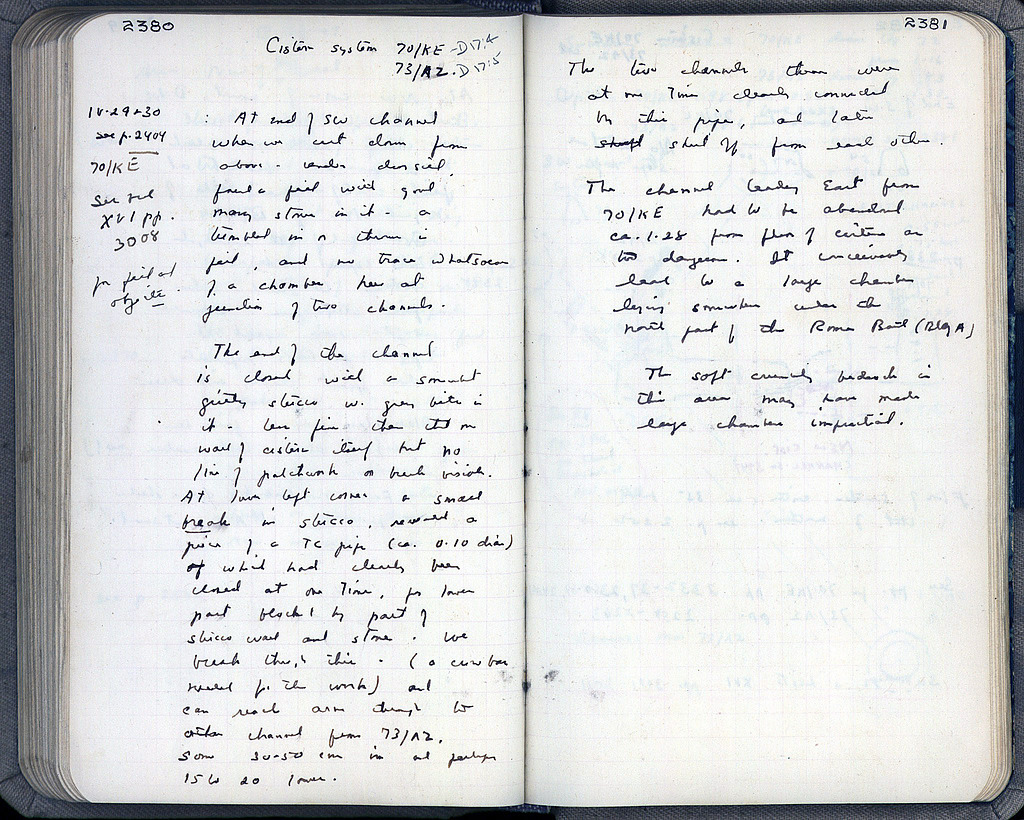 2380
Cistern system 70/KE - D 17:4
73/AZ. D 17:5
IV-29+30
see p. 2404
70/KE
See vol
XVI pp.
3008
for filed
obj
: At end of SW channel
when we cut down from
above - under dossil,
found a fill with good
many stones in it - a
tumbled in or thrown in
fill, and no trace whatsoever
of a chamber here at
junction of two channels.
The end of the channel
is closed with a
gritty stucco w. grey bits in
it - less fine than that on
wall of cistern itself but no
line of patchwork or break visible.
At lower left corner a small
break in stucco, revealed a
piece of a TC pipe (ca. 0.10 diam)
of which had clearly been
closed at one time, for lower
part blocked by part of
stucco wall and stone. We
break through this - (a crowbar
needed for the work) and
can reach arm through to
other channel from 73/AZ.
Some 30-50 cm in and perhaps
15 to 20 lower.
2381
The two channels then were
at one time clearly connected
by this pipe, and later
shut off from each other.
The channel leading East from
70/KE had to be abandoned
ca. 1.28 from floor of cistern as
too dangerous. It conceivably
leads to a large chamber
lying somewhere under the
north part of the Roman Bath (Bldg A)
The soft crumbly bedrock in
this area may have made
large chambers impractical.